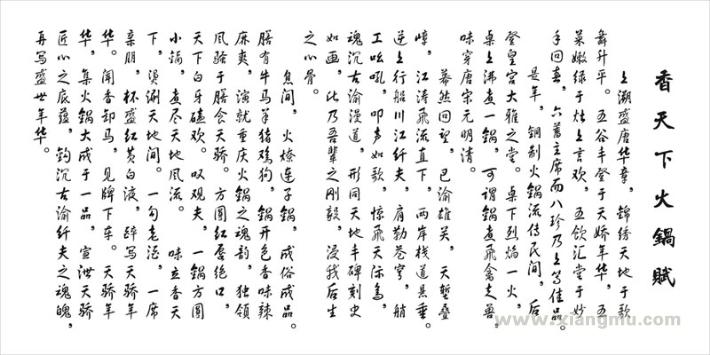 香天下火鍋賦
上溯盛唐华章，锦绣天地于歌
舞升平。五谷丰登于天娇年华，五
菜嫩绿于炷上言欢，五饮汇堂于妙
手回春，六畜主席而八珍乃上等佳品。
是年，铜制火锅流传民间，后
登皇宫大雅之堂。桌下烈焰一火，
桌上沸煮一锅，可谓锅煮飞禽走兽，
味穿唐宋元明清。
蓦然回望，巴渝雄关，天堑叠
嶂，江涛飞流直下，两岸栈道悬垂。
逆上行船川江纤夫，肩勒苍穹，艄
工吆吼，叩声如歌，惊飞天际鸟，
魂沉古渝漫道，形同天地丰碑刻史
如画，此乃吾辈之刚毅，浸我后生
之心骨。
息间，火燎连子锅，成俗成品。
膳有牛马羊猪鸡狗，锅开色香味辣
麻爽，演就重庆火锅之魂韵，独领
风骚于膳食天骄。方圆红唇绝口，
天下白牙磕欢。叹观夫，一锅方圆
小锅，煮尽天地风流。味立香天
下，烫涮天地间。一句老话，一席
亲朋，杯盛红黄白液，醉写天骄年
华。闻香卸马，见牌下车。天骄年
华，集火锅大成于一品，宣泄天骄
匠心之底蕴，钩沉古渝纤夫之魂魄，
再写盛世年华。
www.xiangmu.com